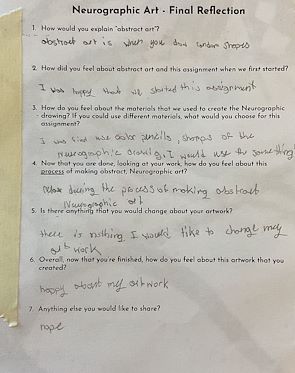 Neurographic Art - Final Reflection
1. How would you explain "abstract art"?
abstract art is when you draw random shapes
2. How did you feel about abstract art and this assignment when we first started?
I was happy that we started this assignment
3. How do you feel about the materials that we used to create the Neurographic
drawing? If you could use different materials, what would you choose for this
assignment?
I was fine use color pencils, sharps of the
neurographic drawing, I would use the same thing
4. Now that you are done, looking at your work, how do you feel about this
process of making abstract, Neurographic art?
relax during the process of making abstract
Neurographic art
5. Is there anything that you would change about your artwork?
there is nothing I would like to change my
art work
6. Overall, now that you're finished, how do you feel about this artwork that you
created?
happy about my artwork
7. Anything else you would like to share?
nope